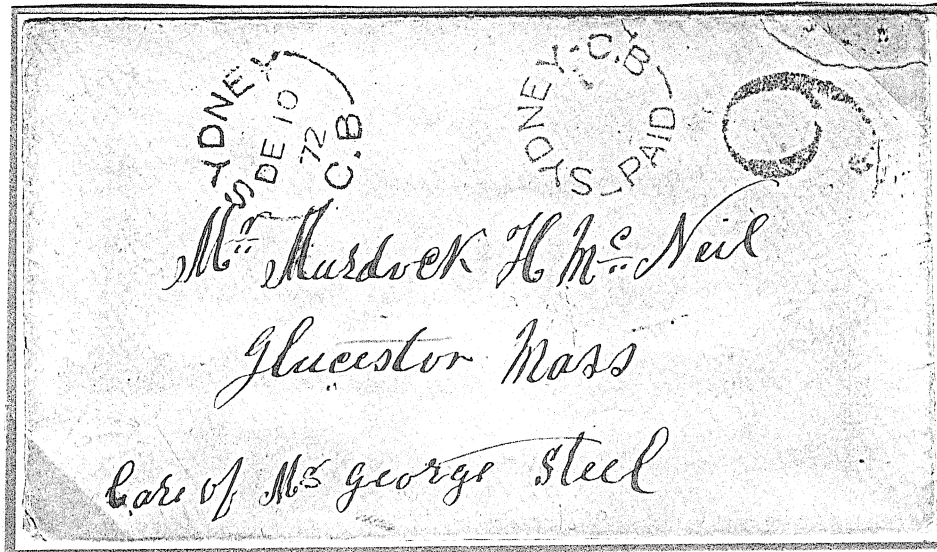 SYDNEY C.B
DE 10
72
SYDNEY-C.B
PAID
6
Mr Murdock H Mc Neil
Glucestor Mass
Care of Mr George Steel